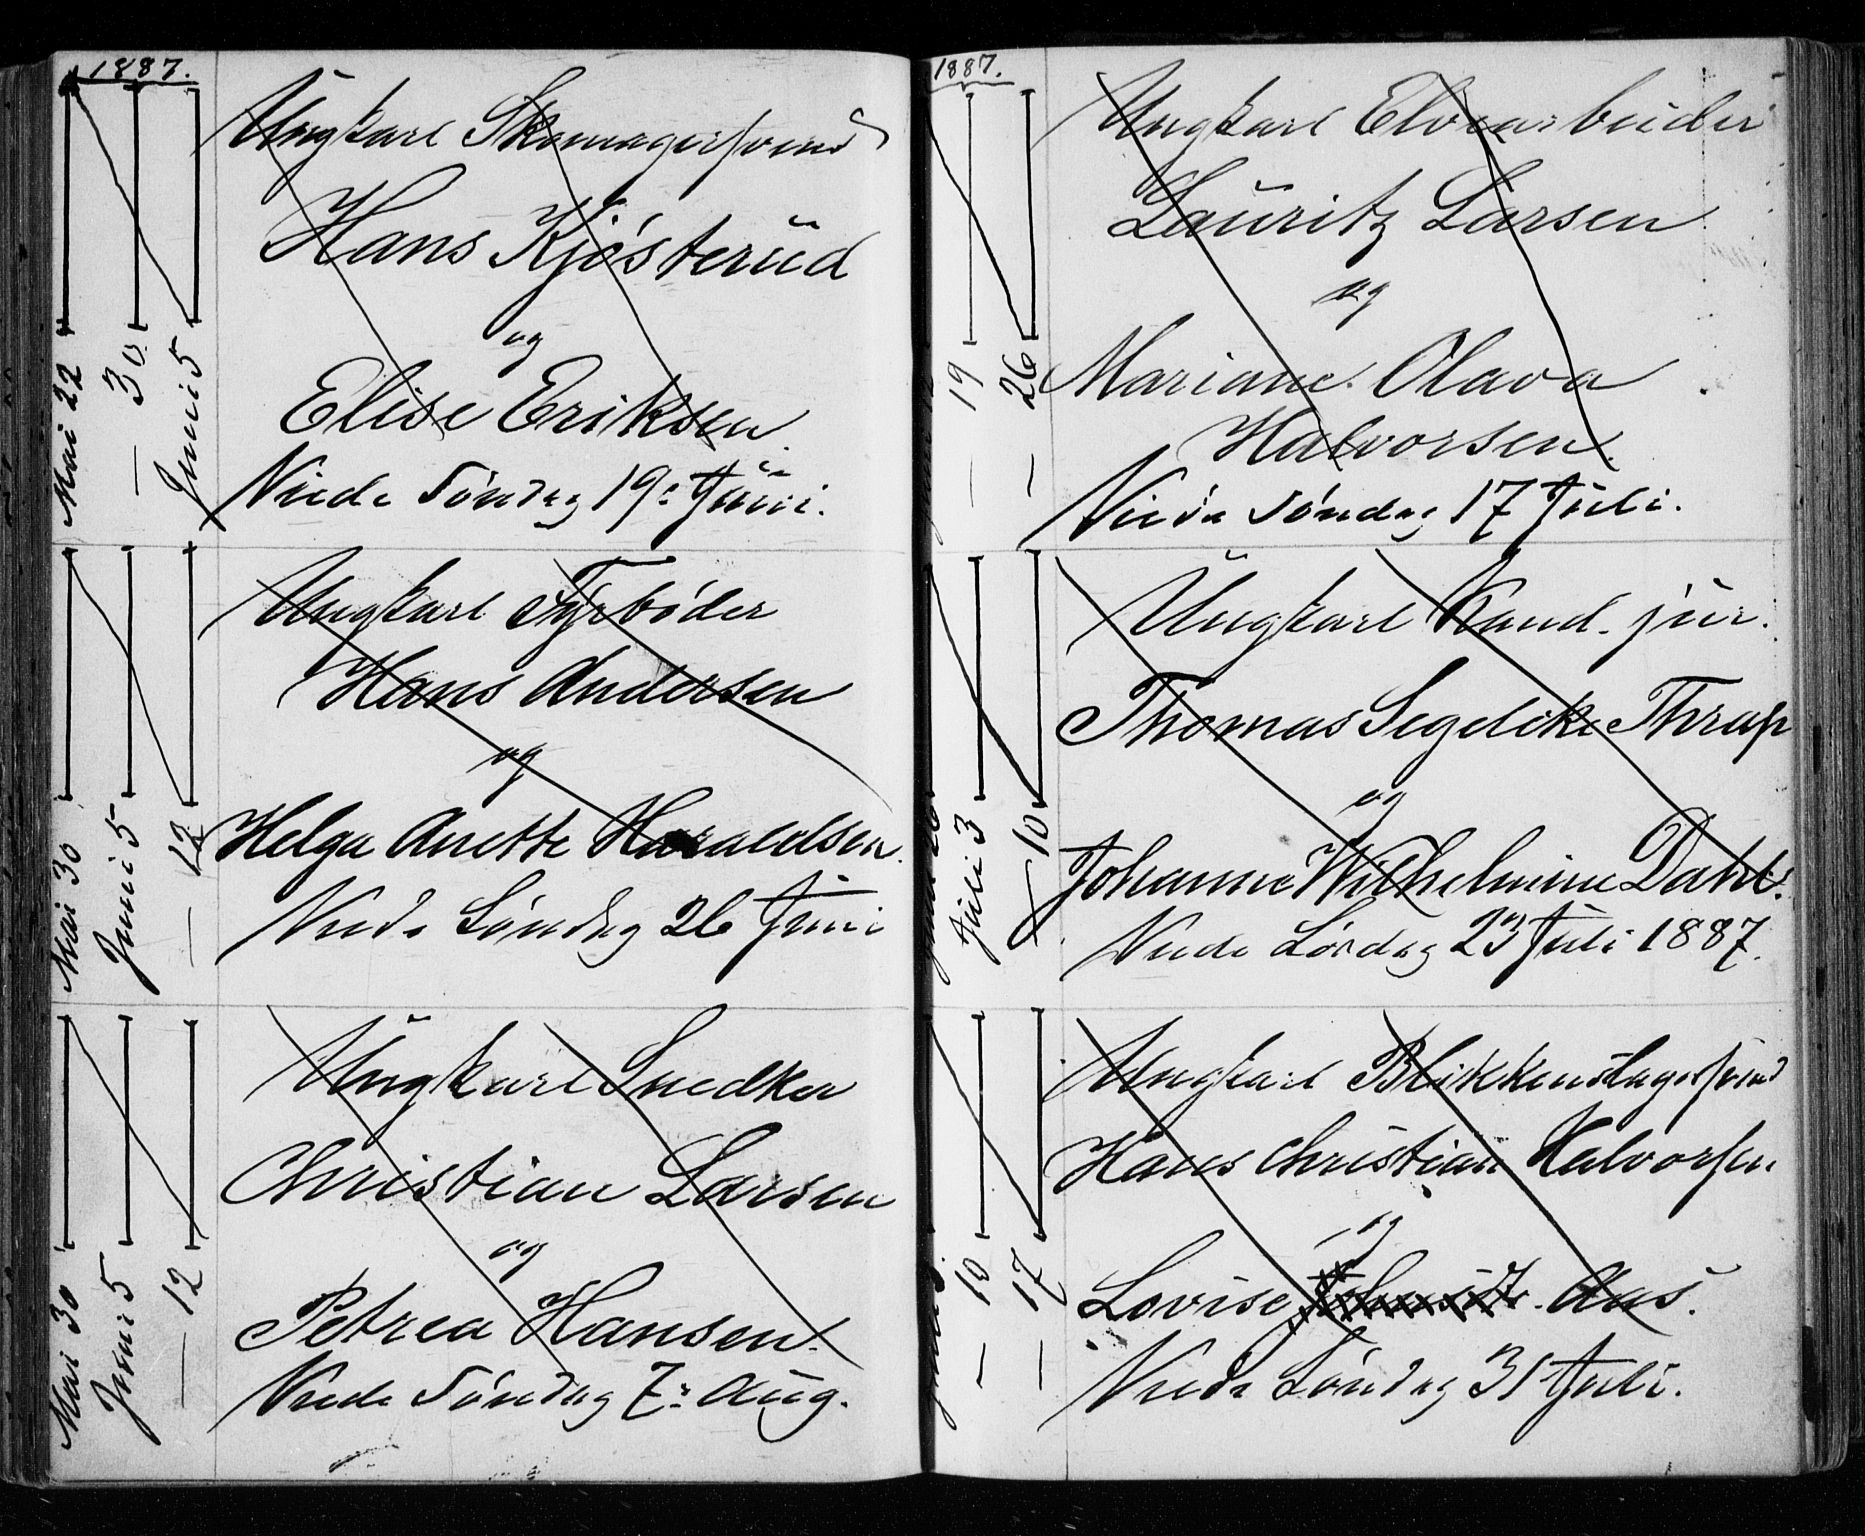 1887.
Mai 22
— 30.
Juni 5
Ungkarl Skomagersvend
Hans Kjósterud
og
Elise Eriksen.
Viede Søndag 19: Juni.
Mai 30
Juni 5
— 12
Ungkarl Fyrbøder
Hans Andersen
og
Helga Anette Haraldsen.
Viede Søndag 26 Juni
Mai 30
Juni 5
— 12
Ungkarl Snedker
Christian Larsen
og
Petrea Hansen.
Viede Søndag 7: Aug.
1887.
— 19
— 26
Ungkarl Elvearbeider
Lauritz Larsen
og
Mariane Olava
Halvorsen.
Viede Søndag 17 Juli.
Juli 3
— 10
Ungkarl Kand. jur.
Thomas Segelcke Thrap
og
Johanne Wilhelmine Dahl.
Viede Lørdag 23 Juli 1887.
— 10
— 17
Ungkarl Blikkenslagersvend
Hans Christian Halvorsen
og
Lovise Aas.
Viede Søndag 31 Juli.